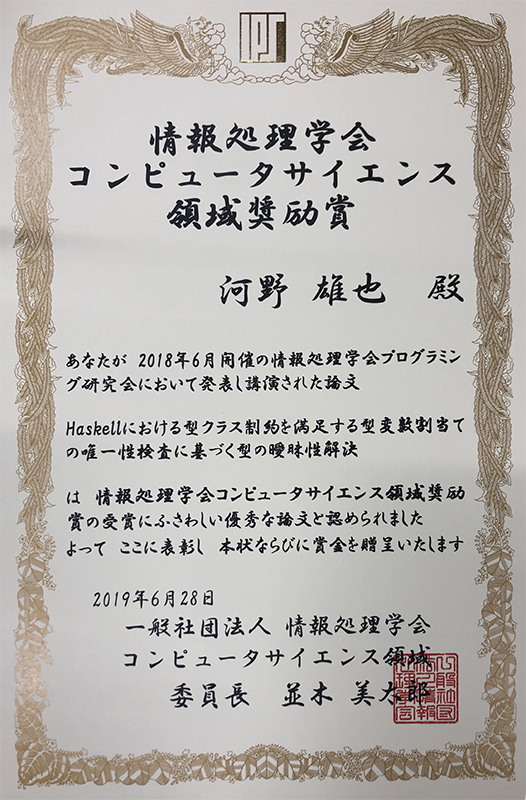 IPSJ
情報処理学会
コンピュータサイエンス
領域奨励賞
河野 雄也 殿
あなたが 2018年6月開催の情報処理学会プログラミン
グ研究会において発表し講演された論文
Haskellにおける型クラス制約を満足する型変数割当て
の唯一性検査に基づく型の曖昧性解決
は 情報処理学会コンピュータサイエンス領域奨励
賞の受賞にふさわしい優秀な論文と認められました
よって ここに表彰し 本状ならびに賞金を贈呈いたします
2019年6月28日
一般社団法人 情報処理学会
コンピュータサイエンス領域
委員長 並木 美太郎